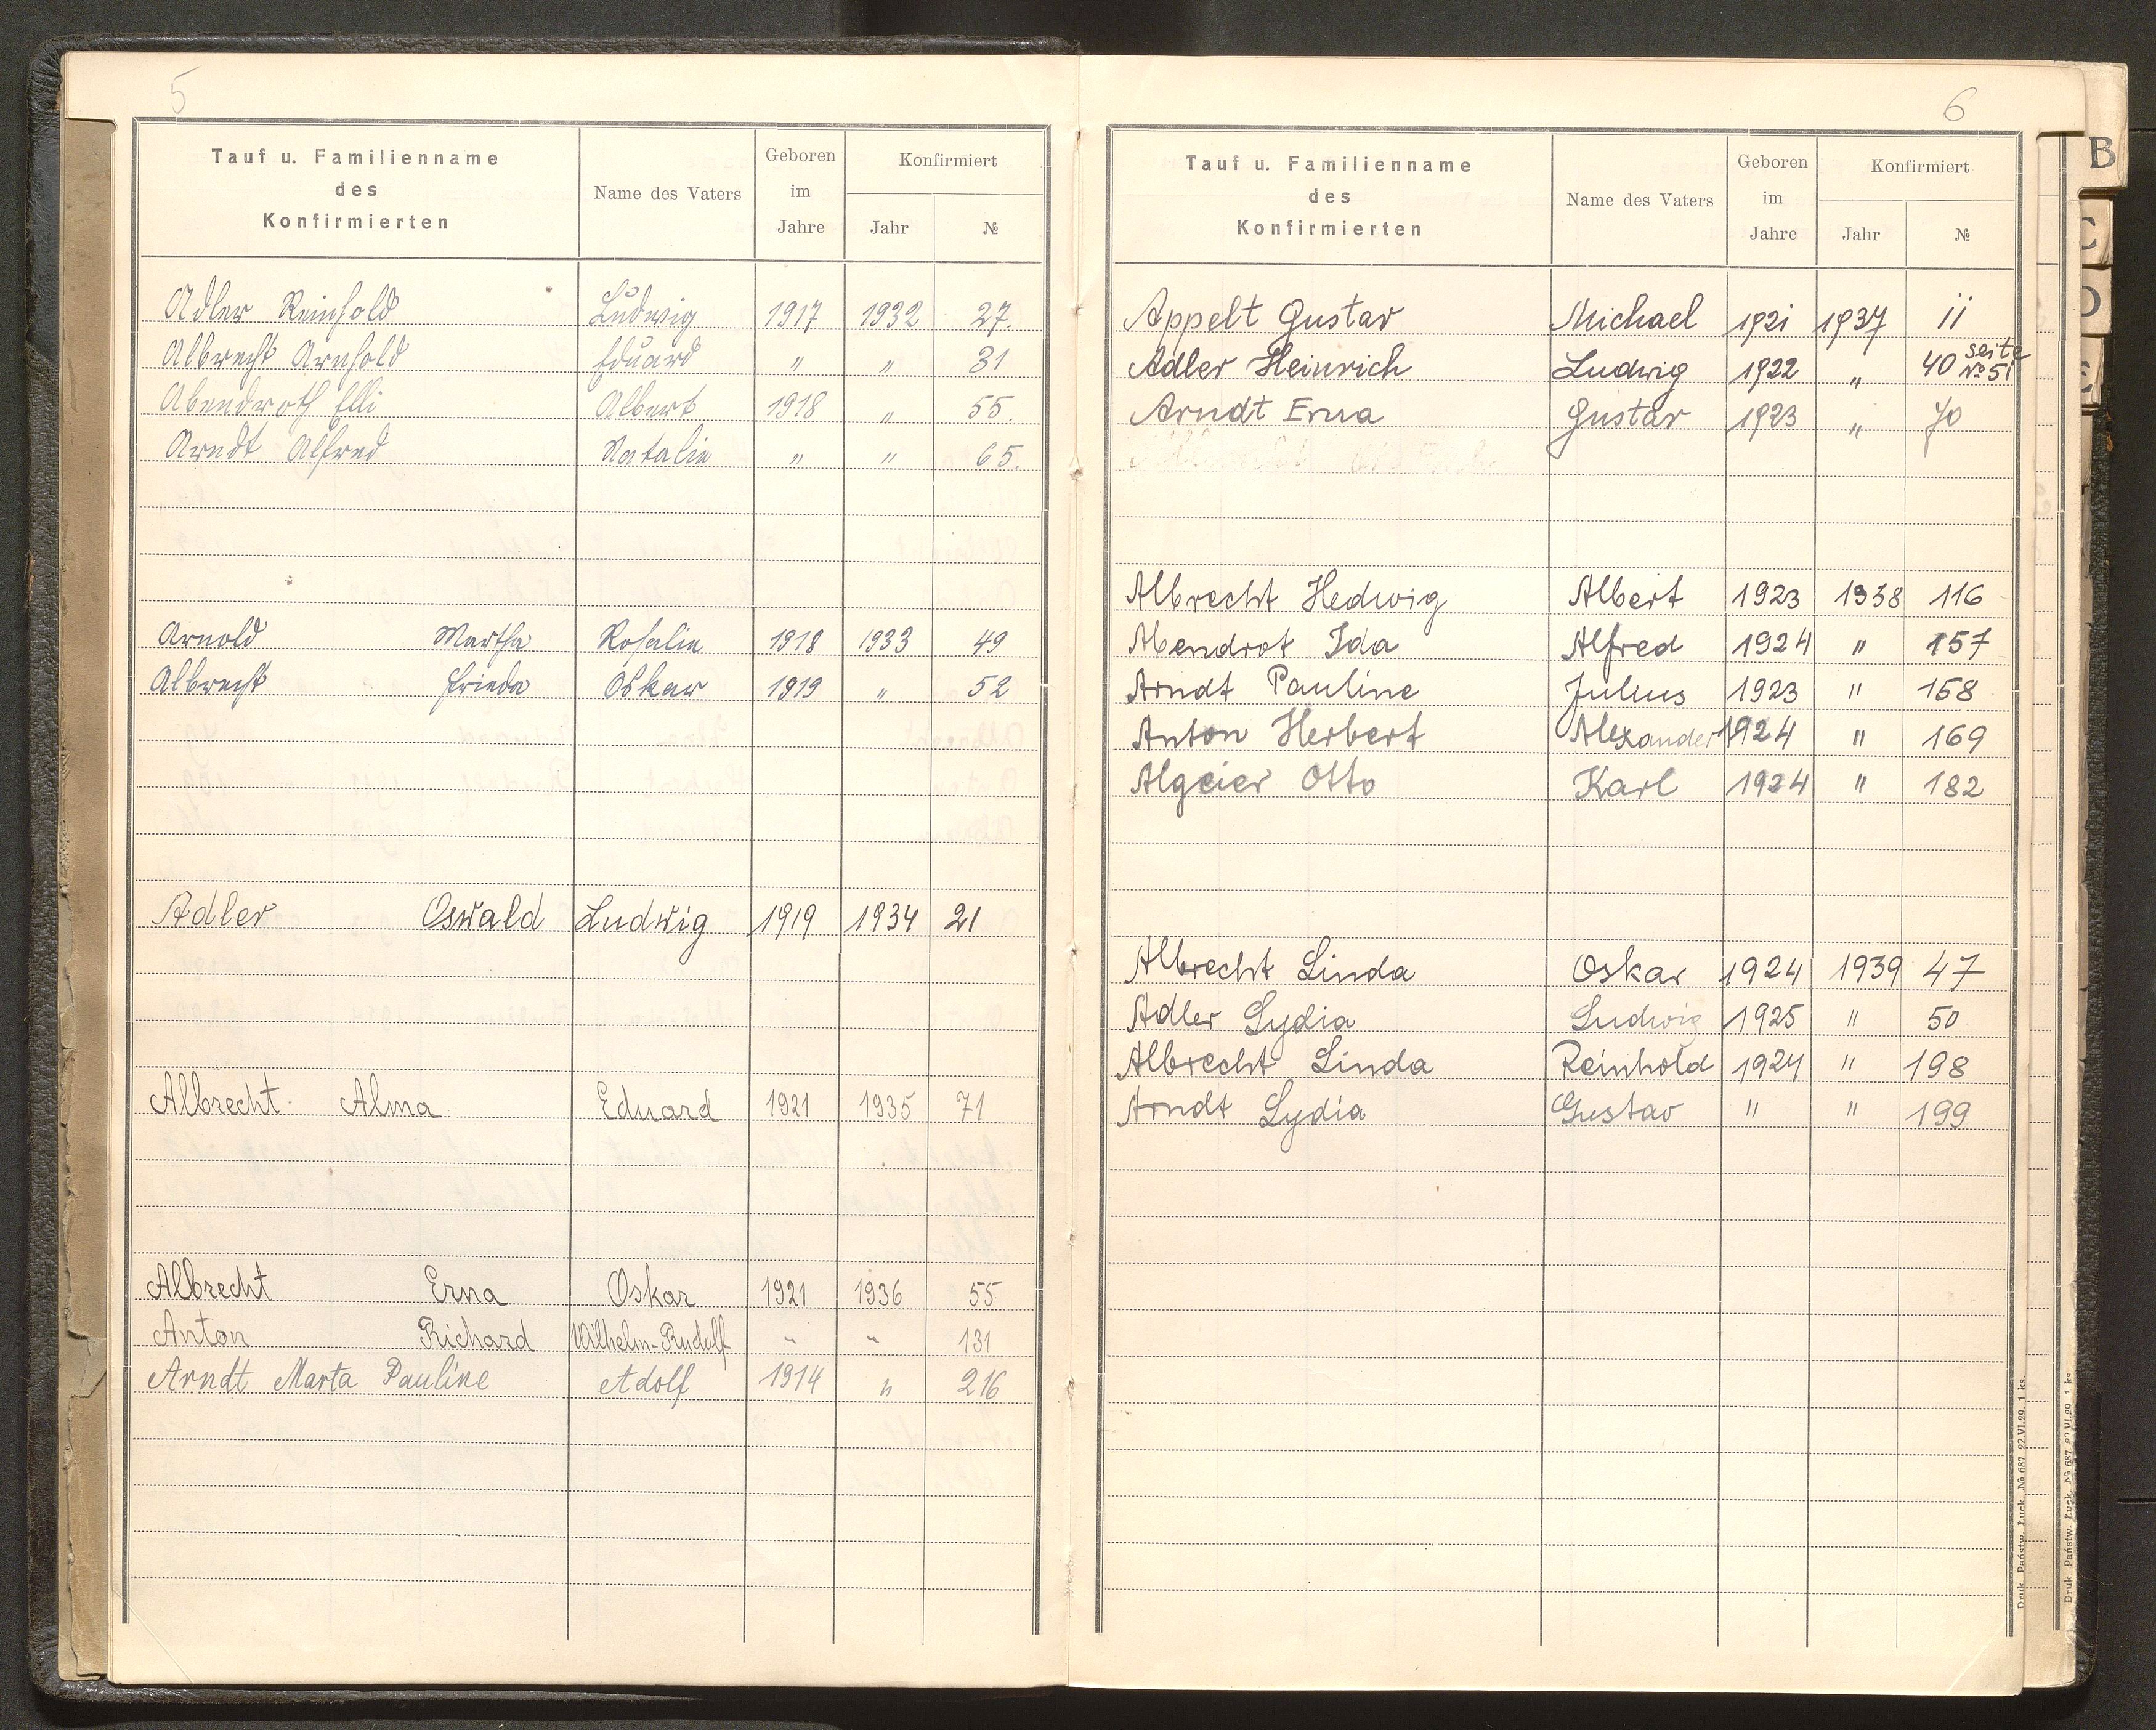 5
Tauf u. Familienname des Konfirmierten | Name des Vaters | Geboren im Jahre | Konfirmiert Jahr | №
Adler Reinhold Ludwig 1917 1932 27.
Albrecht Arnhold Eduard " " 31
Abendroth Elli Albert 1918 " 55.
Arndt Alfred Natalie " " 65.
Arnold Martha Rosalie 1918 1933 49
Albrecht Frieda Oskar 1919 " 52
Adler Oswald Ludwig 1919 1934 21
Albrecht Alma Eduard 1921 1935 71
Albrecht Erna Oskar 1921 1936 55
Anton Richard Wilhelm-Rudolf " " 131
Arndt Marta Pauline Adolf 1914 " 216
6
Tauf u. Familienname des Konfirmierten | Name des Vaters | Geboren im Jahre | Konfirmiert Jahr | №
Appelt Gustav Michael 1921 1937 11
Adler Heinrich Ludwig 1922 " 40 seite № 51
Arndt Erna Gustav 1923 " 70
Albrecht Hedwig Albert 1923 1938 116
Abendrot Ida Alfred 1924 " 157
Arndt Pauline Julius 1923 " 158
Anton Herbert Alexander 1924 " 169
Algeier Otto Karl 1924 " 182
Albrecht Linda Oskar 1924 1939 47
Adler Lydia Ludwig 1925 " 50
Albrecht Linda Reinhold 1924 " 198
Arndt Lydia Gustav " " 199
Druk. Państw. Łuck. № 687. 22.VI.29. 1 ks.
Druk. Państw. Łuck. № 687. 22.VI.29. 1 ks
B
C
D
E